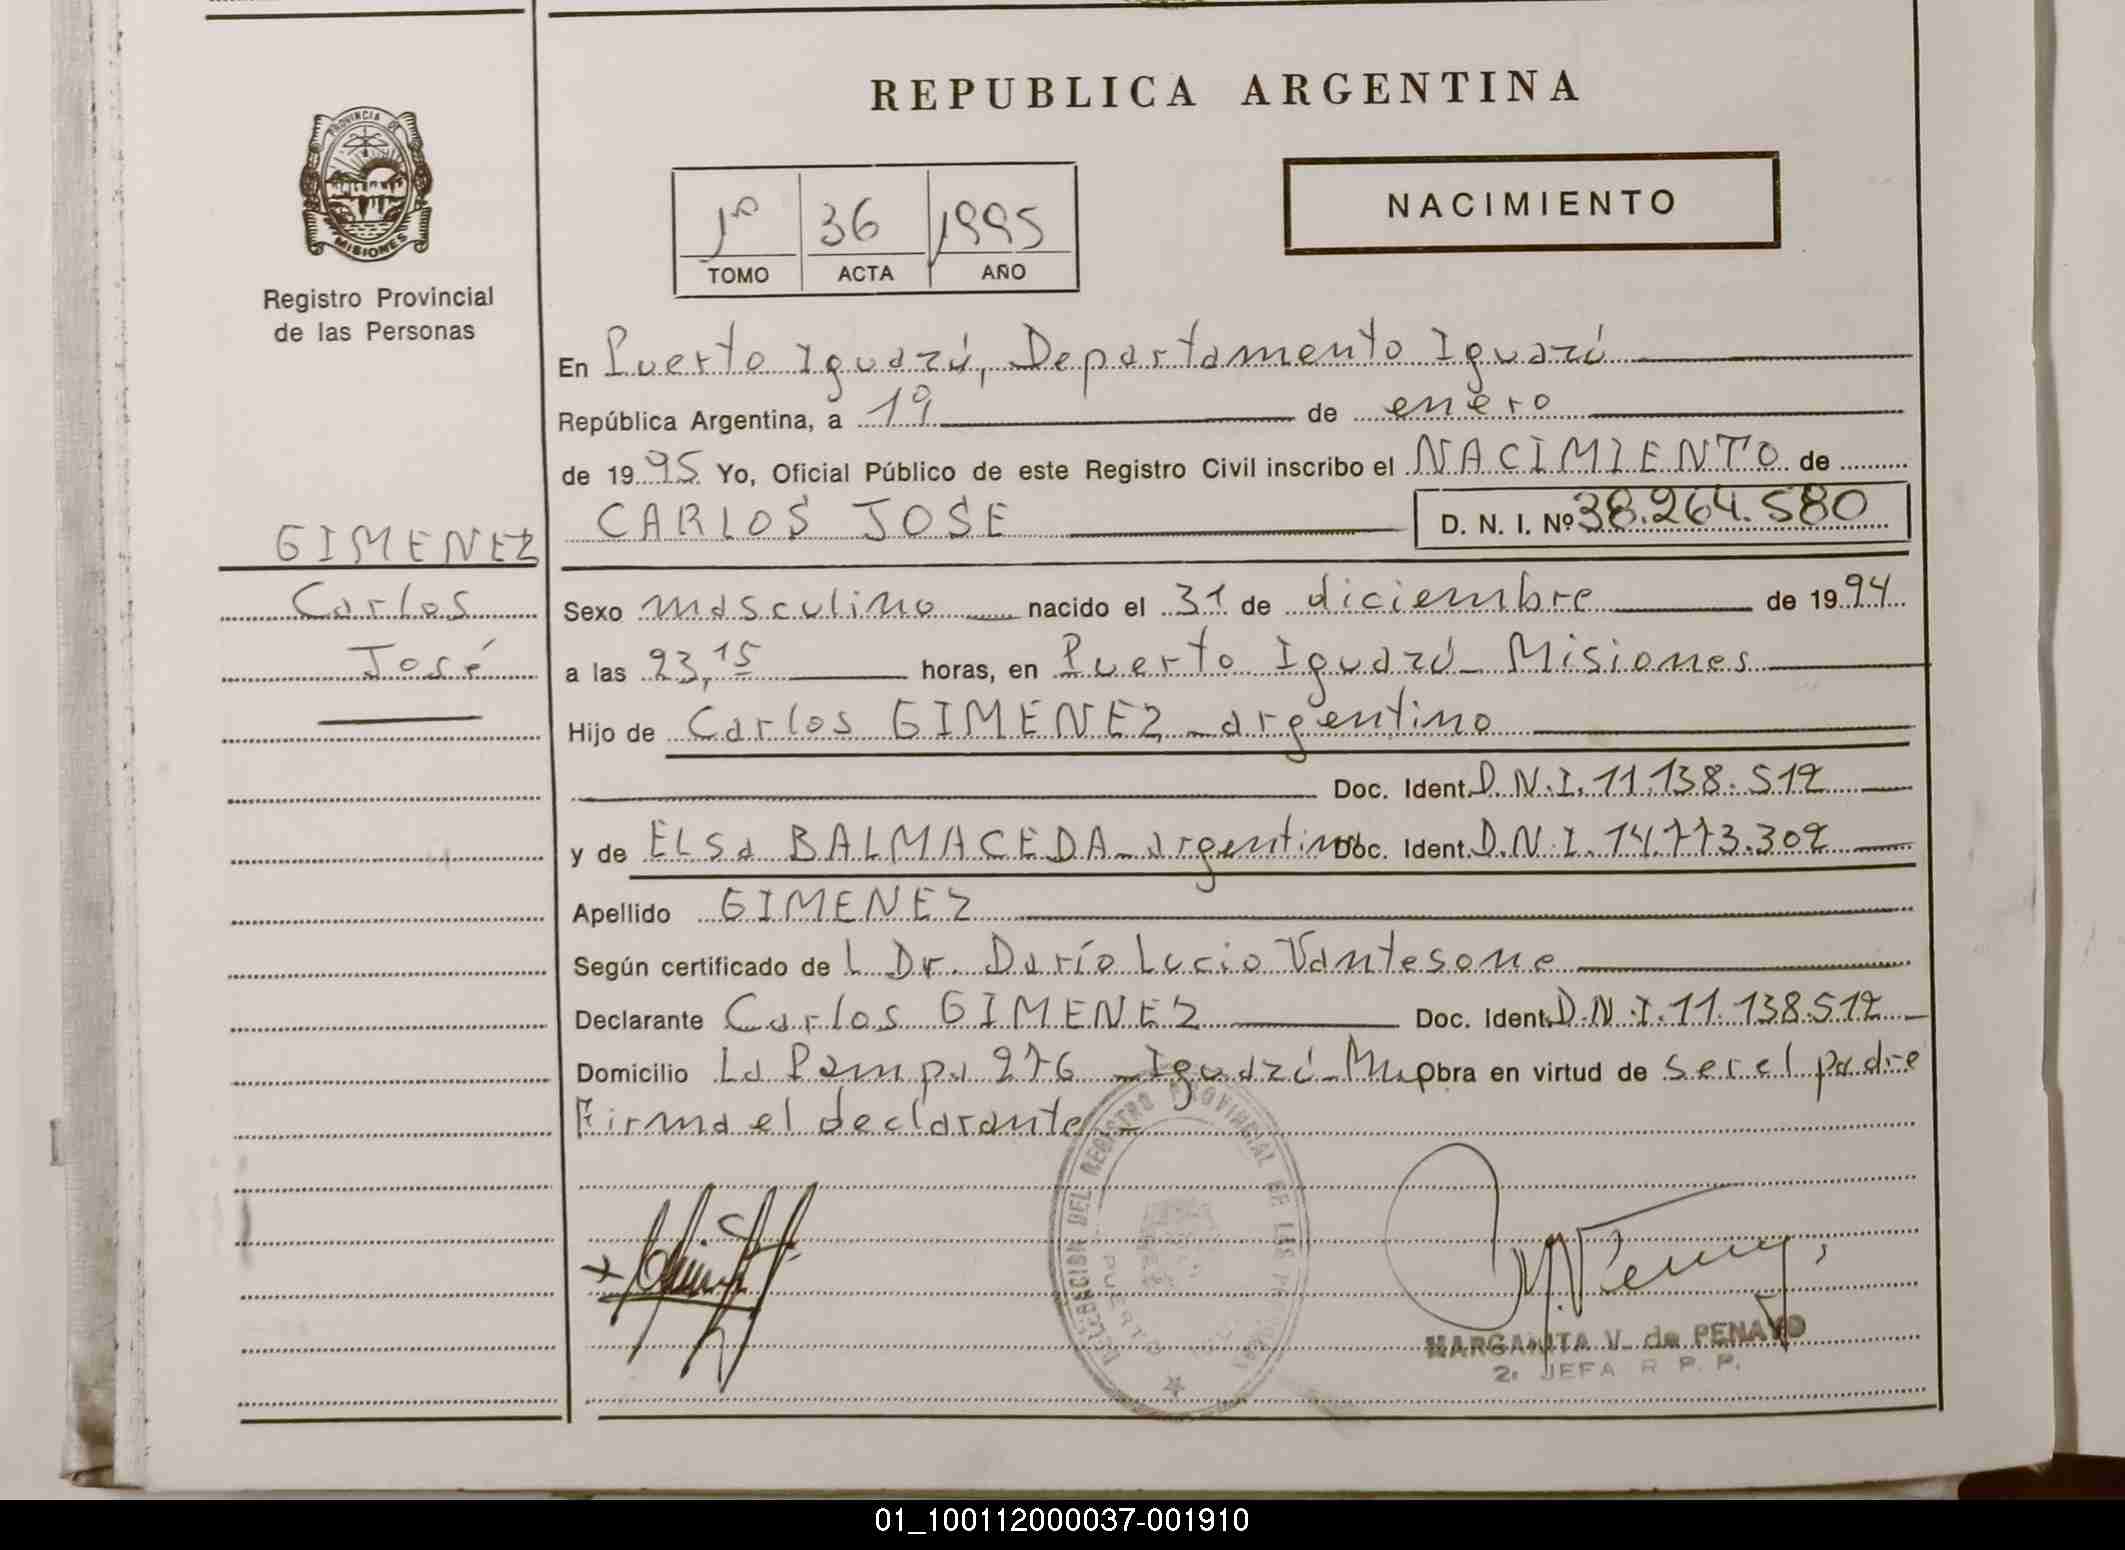 REPUBLICA ARGENTINA
PROVINCIA DE
MISIONES
Registro Provincial
de las Personas
1º 36 1995
TOMO ACTA AÑO
NACIMIENTO
En Puerto Iguazú, Departamento Iguazú
República Argentina, a 19 de enero
de 1995 Yo, Oficial Público de este Registro Civil inscribo el NACIMIENTO de
CARLOS JOSE D. N. I. Nº 38.264.580
GIMENEZ
Carlos
José
Sexo masculino nacido el 31 de diciembre de 1994
a las 23,15 horas, en Puerto Iguazú - Misiones
Hijo de Carlos GIMENEZ - argentino
Doc. Ident. D.N.I. 11.138.512
y de ELSa BALMACEDA - argentina Doc. Ident. D.N.I. 14.773.302
Apellido GIMENEZ
Según certificado de l Dr. Darío Lucio Vantesone
Declarante Carlos GIMENEZ Doc. Ident. D.N.I. 11.138.512
Domicilio La Pampa 276 - Iguazú - Mnes Obra en virtud de ser el padre
Firma el declarante -
DELEGACION DEL REGISTRO PROVINCIAL DE LAS
PUERTO
MARGARITA V. de PENAYO
2. JEFA R. P. P.
01_100112000037-001910